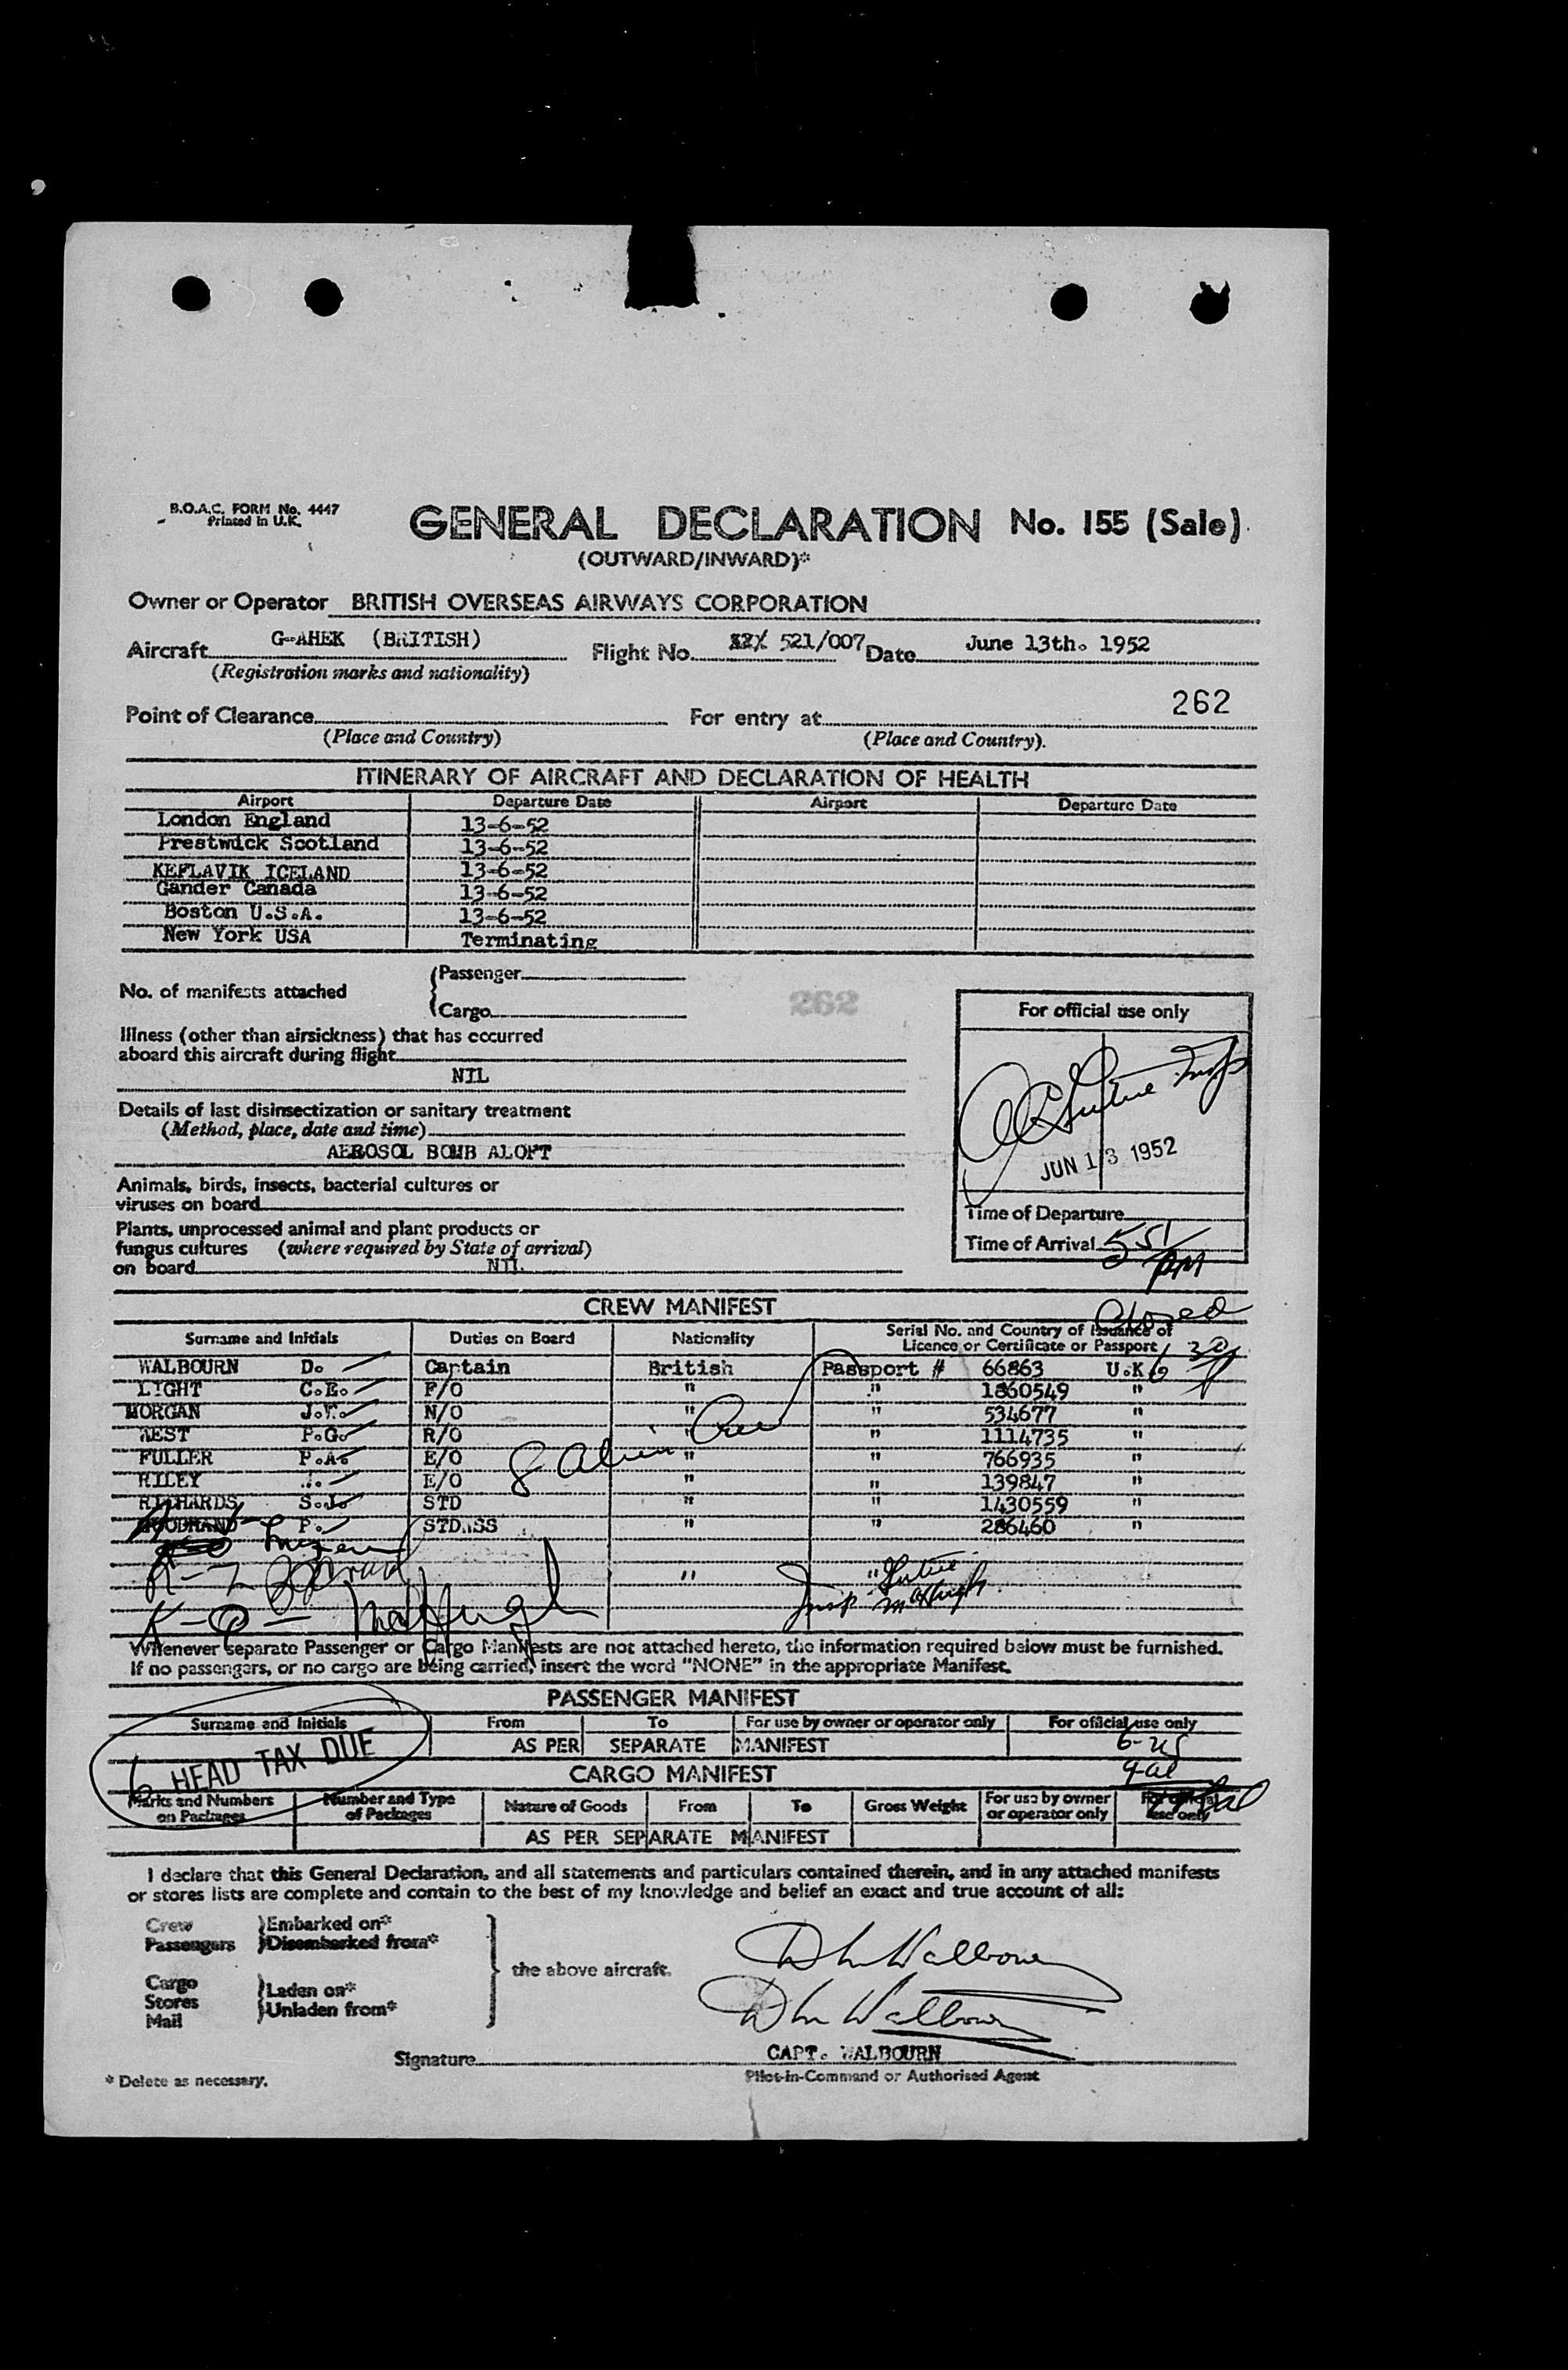 B.O.A.C. FORM No. 4447
Printed in U.K.
GENERAL DECLARATION No. 155 (Sale)
(OUTWARD/INWARD)*
Owner or Operator BRITISH OVERSEAS AIRWAYS CORPORATION
Aircraft G-AHEK (BRITISH) Flight No. 521/007 Date June 13th. 1952
(Registration marks and nationality)
262
Point of Clearance For entry at
(Place and Country) (Place and Country).
ITINERARY OF AIRCRAFT AND DECLARATION OF HEALTH
Airport Departure Date Airport Departure Date
London England 13-6-52
Prestwick Scotland 13-6-52
KEFLAVIK ICELAND 13-6-52
Gander Canada 13-6-52
Boston U.S.A. 13-6-52
New York USA Terminating
No. of manifests attached { Passenger
Cargo
262
For official use only
Illness (other than airsickness) that has occurred
aboard this aircraft during flight
NIL
Details of last disinsectization or sanitary treatment
(Method, place, date and time)
AEROSOL BOMB ALOFT
JUN 13 1952
Animals, birds, insects, bacterial cultures or
viruses on board
Time of Departure
Plants, unprocessed animal and plant products or
fungus cultures (where required by State of arrival)
on board NIL
Time of Arrival 551
PM
CREW MANIFEST
Closed
Surname and Initials Duties on Board Nationality Serial No. and Country of Issuance of
Licence or Certificate or Passport
WALBOURN D. Captain British Passport # 66863 U.K.
LIGHT C.E. F/O " " 1860549 "
MORGAN N/O " " 534677 "
WEST P.G. R/O " " 1114735 "
FULLER P.A. E/O " " 766935 "
RILEY E/O " " 139847 "
RICHARDS S.J. STD " " 1430559 "
P. STD.SS " " 286460 "
8 Alien Crew
" "
Insp McHugh
McHugh
Whenever separate Passenger or Cargo Manifests are not attached hereto, the information required below must be furnished.
If no passengers, or no cargo are being carried, insert the word "NONE" in the appropriate Manifest.
PASSENGER MANIFEST
Surname and Initials From To For use by owner or operator only For official use only
AS PER SEPARATE MANIFEST
6 HEAD TAX DUE
CARGO MANIFEST
Marks and Numbers on Packages Number and Type of Packages Nature of Goods From To Gross Weight For use by owner or operator only For official use only
AS PER SEPARATE MANIFEST
I declare that this General Declaration, and all statements and particulars contained therein, and in any attached manifests
or stores lists are complete and contain to the best of my knowledge and belief an exact and true account of all:
Crew } Embarked on*
Passengers } Disembarked from*
the above aircraft.
Cargo
Stores } Laden on*
Mail } Unladen from*
D Walbourn
D Walbourn
CAPT. WALBOURN
Signature
* Delete as necessary.
Pilot-in-Command or Authorised Agent